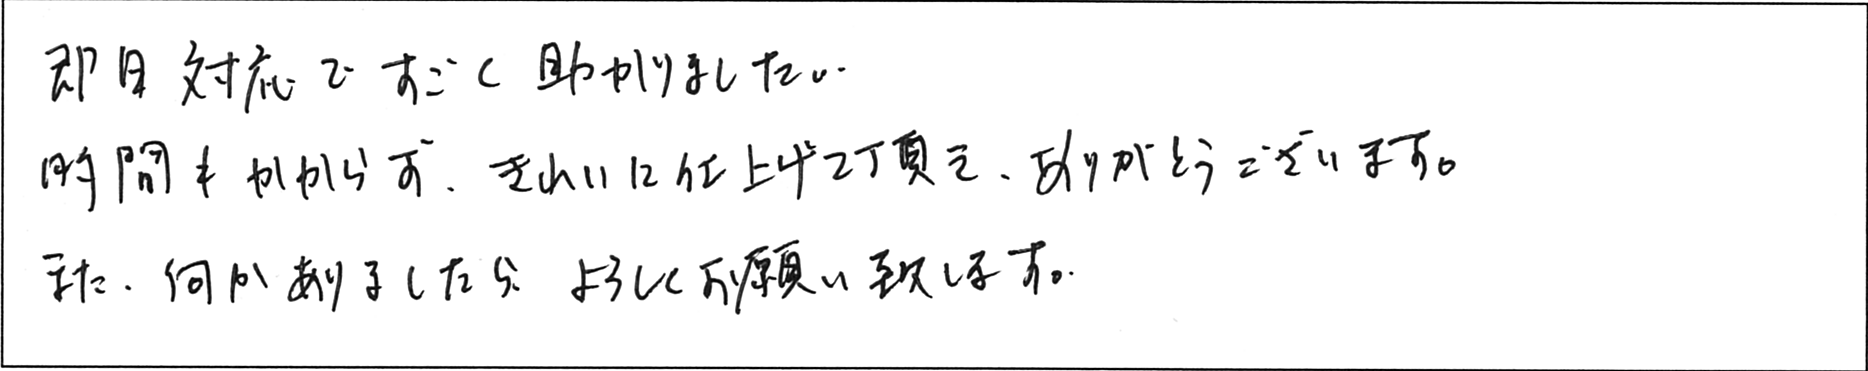 即日対応ですごく助かりました。
時間もかからず、きれいに仕上げて頂き、ありがとうございます。
また、何かありましたら、よろしくお願い致します。